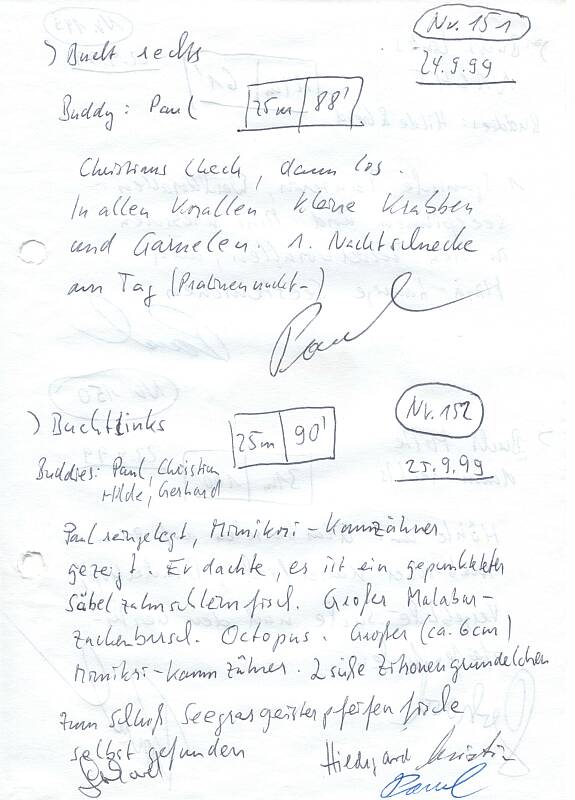 Nr. 151
) Bucht rechts
24.9.99
Buddy: Paul 25m 88'
Christians Check, dann los.
In allen Korallen kleine Krabben
und Garnelen. 1. Nachtschnecke
am Tag (Pralinennackt-)
Paul
Nr. 152
) Bucht links
25m 90'
25.9.99
Buddies: Paul, Christian
Hilde, Gerhard
Paul reingelegt, Mimikri-Kammzähner
gezeigt. Er dachte, es ist ein gepunkteter
Säbelzahnschleimfisch. Großer Malabar-
Zackenbarsch. Octopus. Großer (ca. 6cm)
Mimikri-Kammzähner. 2 süße Zitronengrundelchen
Zum Schluß Seegrasgeisterpfeifenfische
selbst gefunden
Hildegard Christian
Gerhard
Paul